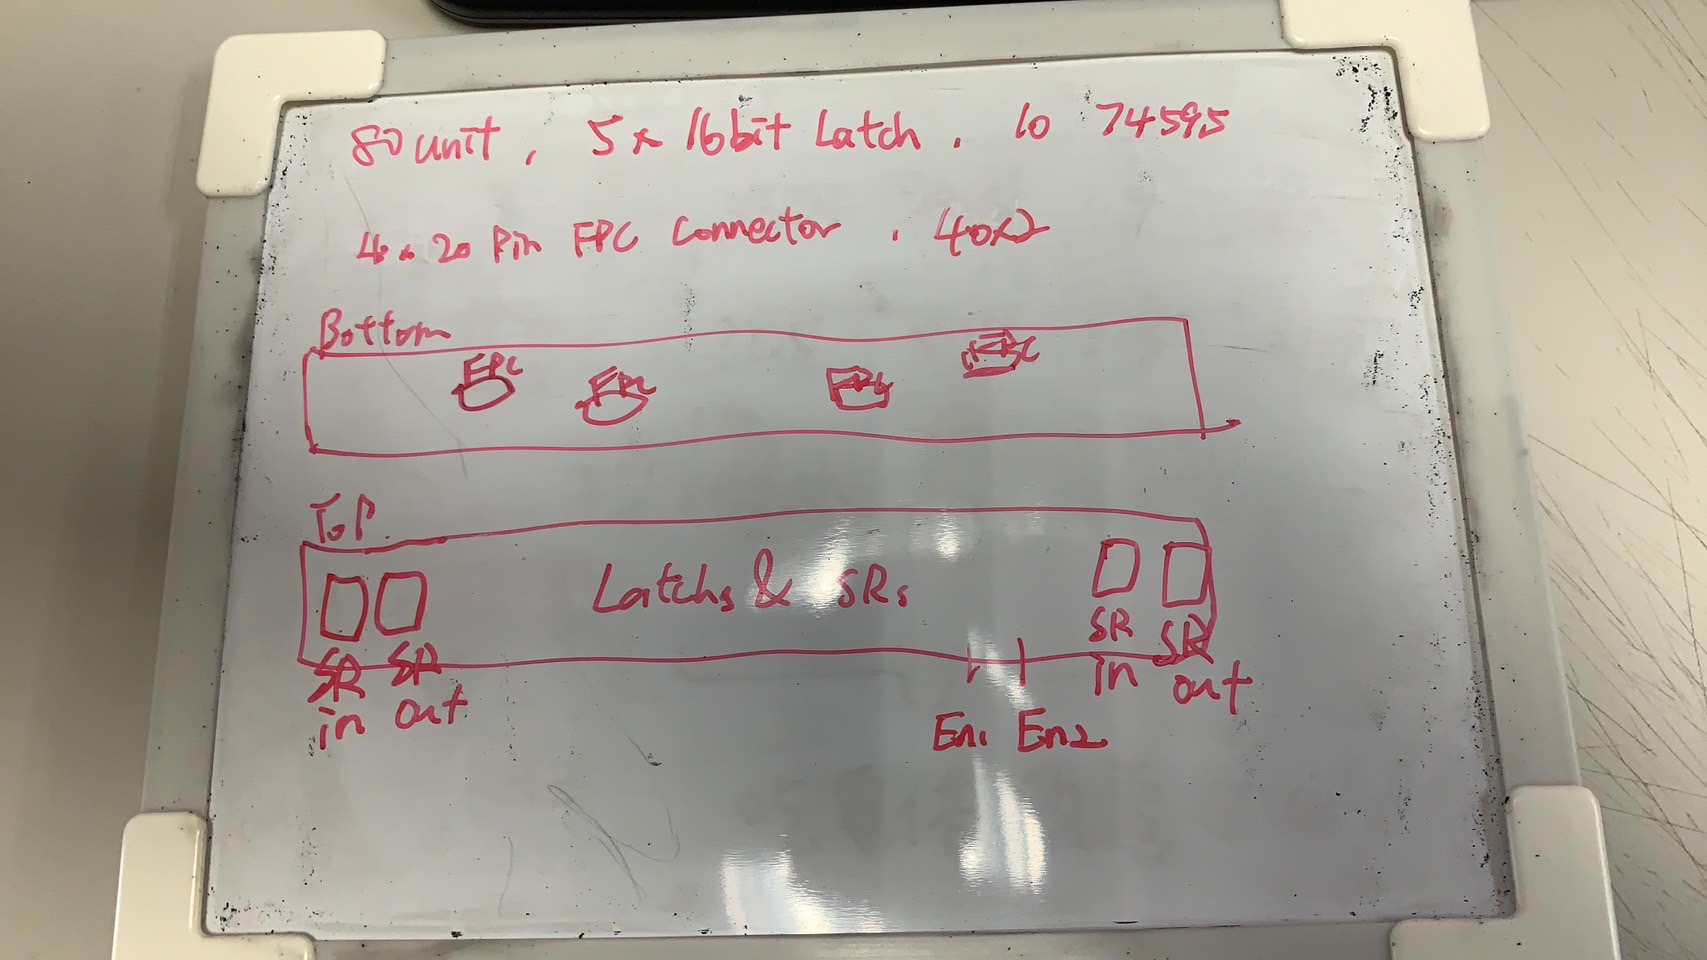 80 unit, 5 x 16bit Latch, 10 74595
4 x 20 Pin FPC Connector, 40x2
Bottom
FPC FPC FPC
Top
Latchs & SRs
SR in SR out SR in SR out
En1 En2